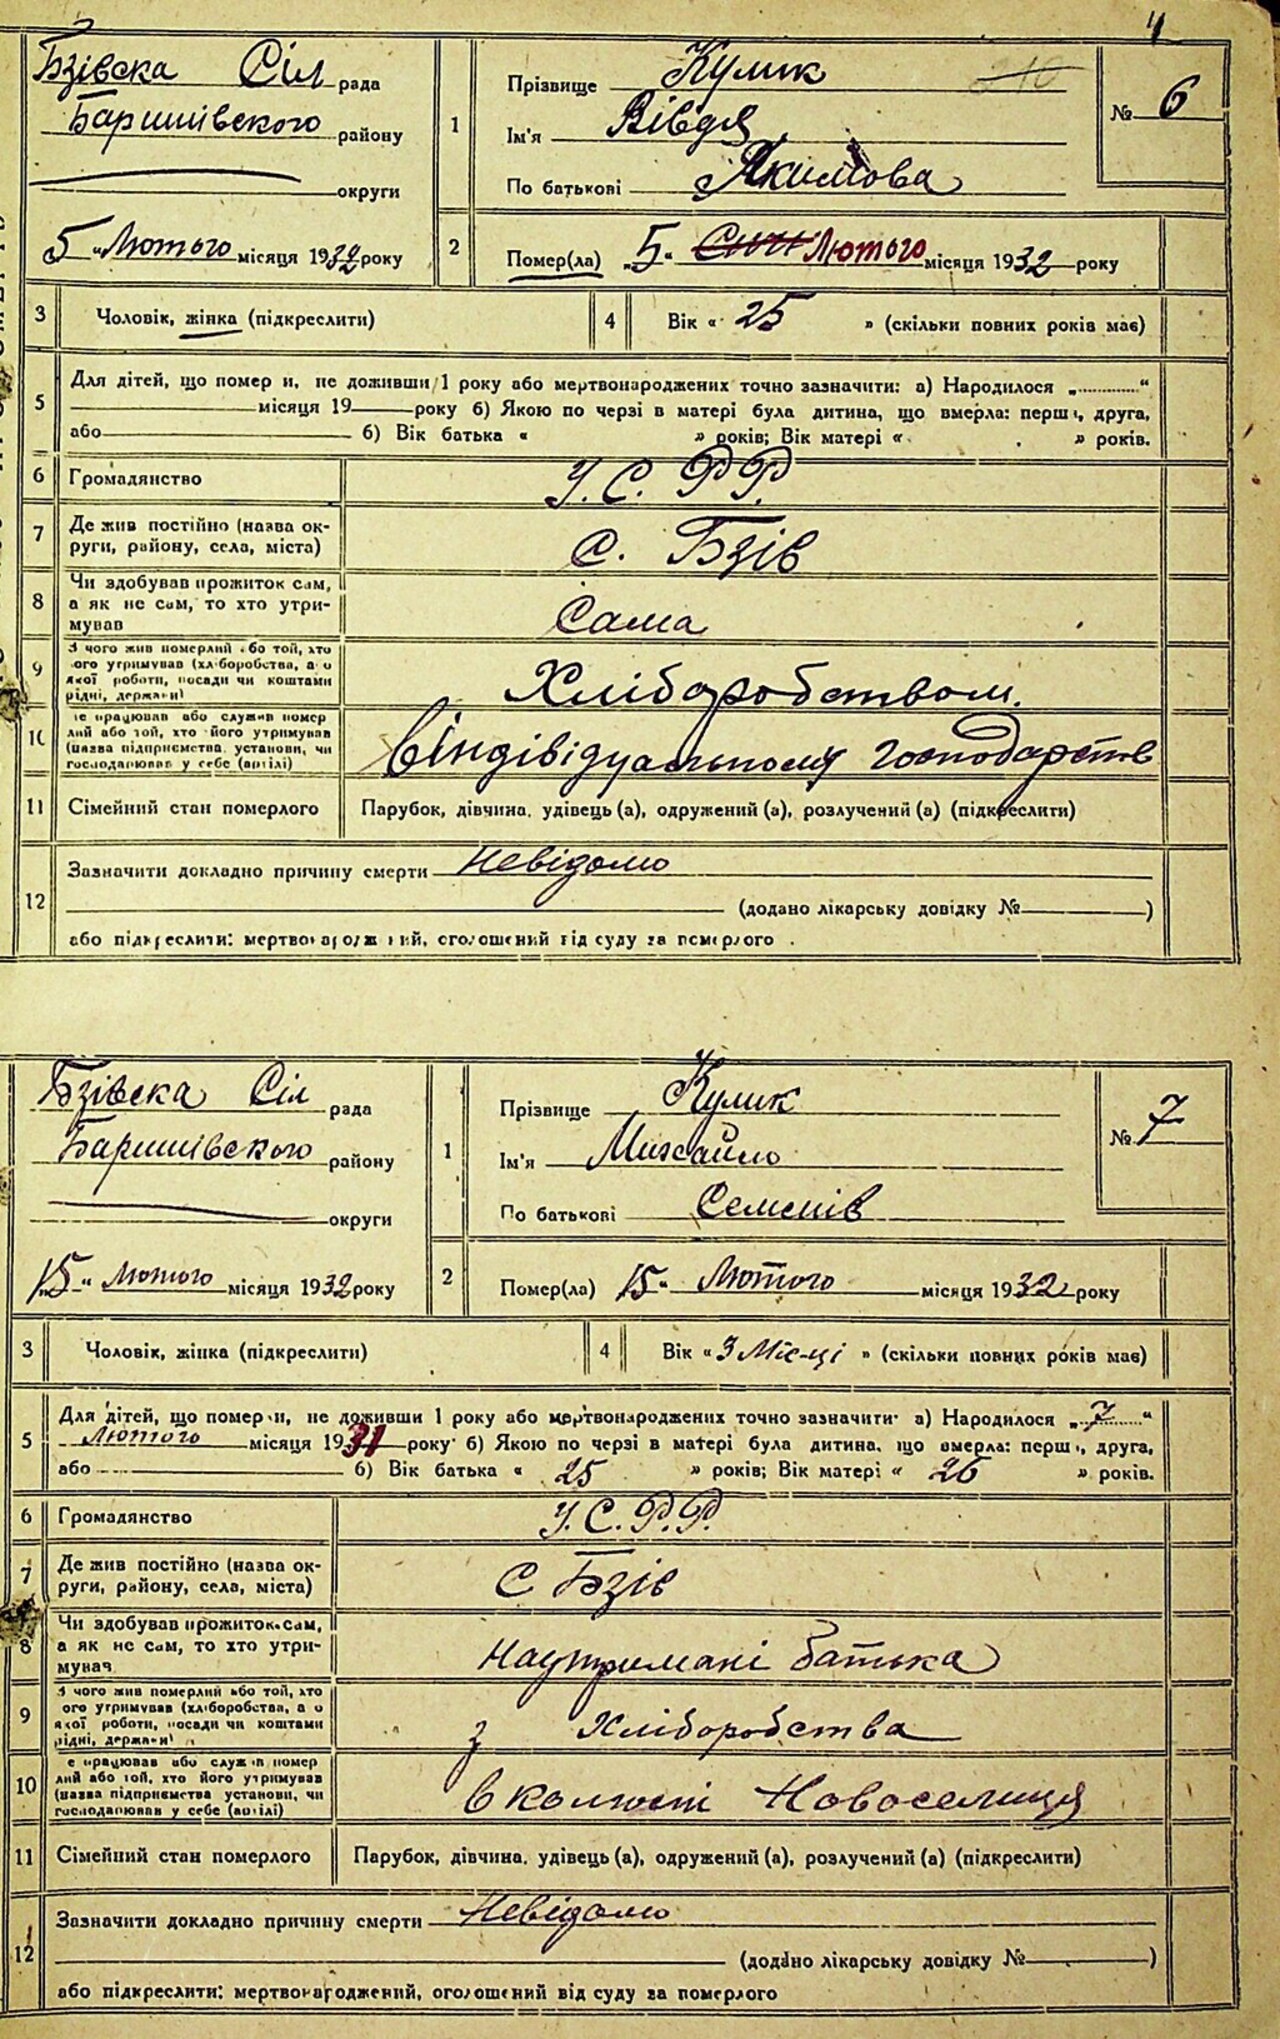 4
Бзівска Сіл рада
Баришівского району
округи
„5“ Лютого місяця 1932 року
1
Прізвище Кулик
Ім'я Вівдя
По батькові Якимова
№ 6
2
Помер(ла) „5“ Січн Лютого місяця 1932 року
3 Чоловік, жінка (підкреслити)
4 Вік « 25 » (скільки повних років має)
5 Для дітей, що помер и, не доживши 1 року або мертвонароджених точно зазначити: а) Народилося „............“
місяця 19 року б) Якою по черзі в матері була дитина, що вмерла: перша, друга,
або б) Вік батька « » років; Вік матері « » років.
6 Громадянство У.С.Р.Р.
7 Де жив постійно (назва ок-
руги, району, села, міста) С. Бзів
8 Чи здобував прожиток сам,
а як не сам, то хто утри-
мував Сама
9 З чого жив померлий або той, хто
ого утримував (хліборобства, а о
якої роботи, посади чи коштами
рідні, держави) Хліборобством.
10 е працював або служив помер
лий або той, хто його утримував
(назва підприємства установи, чи
господарював у себе (артілі) Віндівідуальному господарств
11 Сімейний стан померлого Парубок, дівчина, удівець (а), одружений (а), розлучений (а) (підкреслити)
12 Зазначити докладно причину смерти Невідомо
(додано лікарську довідку № )
або підкреслити: мертвонароджений, оголошений від суду за померлого .
Бзівска Сіл рада
Баришівского району
округи
„15“ Лютого місяця 1932 року
1
Прізвище Кулик
Ім'я Михайло
По батькові Семенів
№ 7
2
Помер(ла) „15“ Лютого місяця 1932 року
3 Чоловік, жінка (підкреслити)
4 Вік « 3 Міс-ці » (скільки повних років має)
5 Для дітей, що помер и, не доживши 1 року або мертвонароджених точно зазначити: а) Народилося „7“
Лютого місяця 1931 року б) Якою по черзі в матері була дитина, що вмерла: перша, друга,
або б) Вік батька « 25 » років; Вік матері « 26 » років.
6 Громадянство У.С.Р.Р.
7 Де жив постійно (назва ок-
руги, району, села, міста) С Бзів
8 Чи здобував прожиток сам,
а як не сам, то хто утри-
мувач Наутримані батька
9 З чого жив померлий або той, хто
ого утримував (хліборобства, а о
якої роботи, посади чи коштами
рідні, держави) з Хліборобства
10 е працював або служив помер
лий або той, хто його утримував
(назва підприємства установи, чи
господарював у себе (артілі) в колгоспі Новоселиця
11 Сімейний стан померлого Парубок, дівчина, удівець (а), одружений (а), розлучений (а) (підкреслити)
12 Зазначити докладно причину смерти Невідомо
(додано лікарську довідку № )
або підкреслити: мертвонароджений, оголошений від суду за померлого